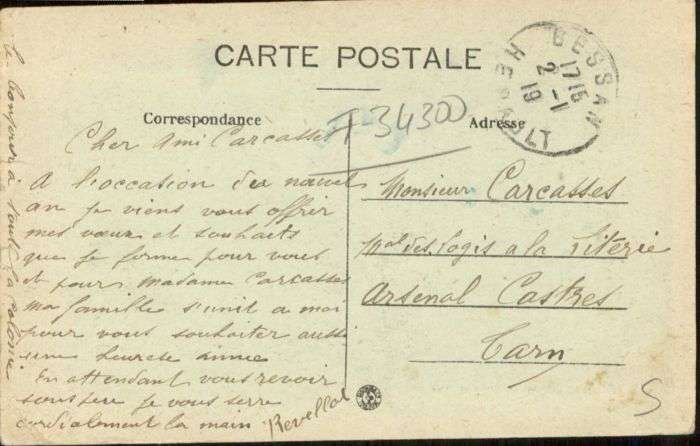 CARTE POSTALE
Correspondance
Adresse
BESSAN
HERAULT
17 15
2 - 1
19
T 34300
Cher Ami Carcasses
A l'occasion du nouvel
an je viens vous offrir
mes vœux et souhaits
que je forme pour vous
et pour madame Carcasses
ma famille s'unit a moi
pour vous souhaiter aussi
une heurese année
En attendant vous revoir
sous peu je vous serre
cordialement la main
Revellat
le bonjour à toute la colonie
Monsieur Carcasses
Mal des Logis a la Literie
Arsenal Castres
Tarn
5